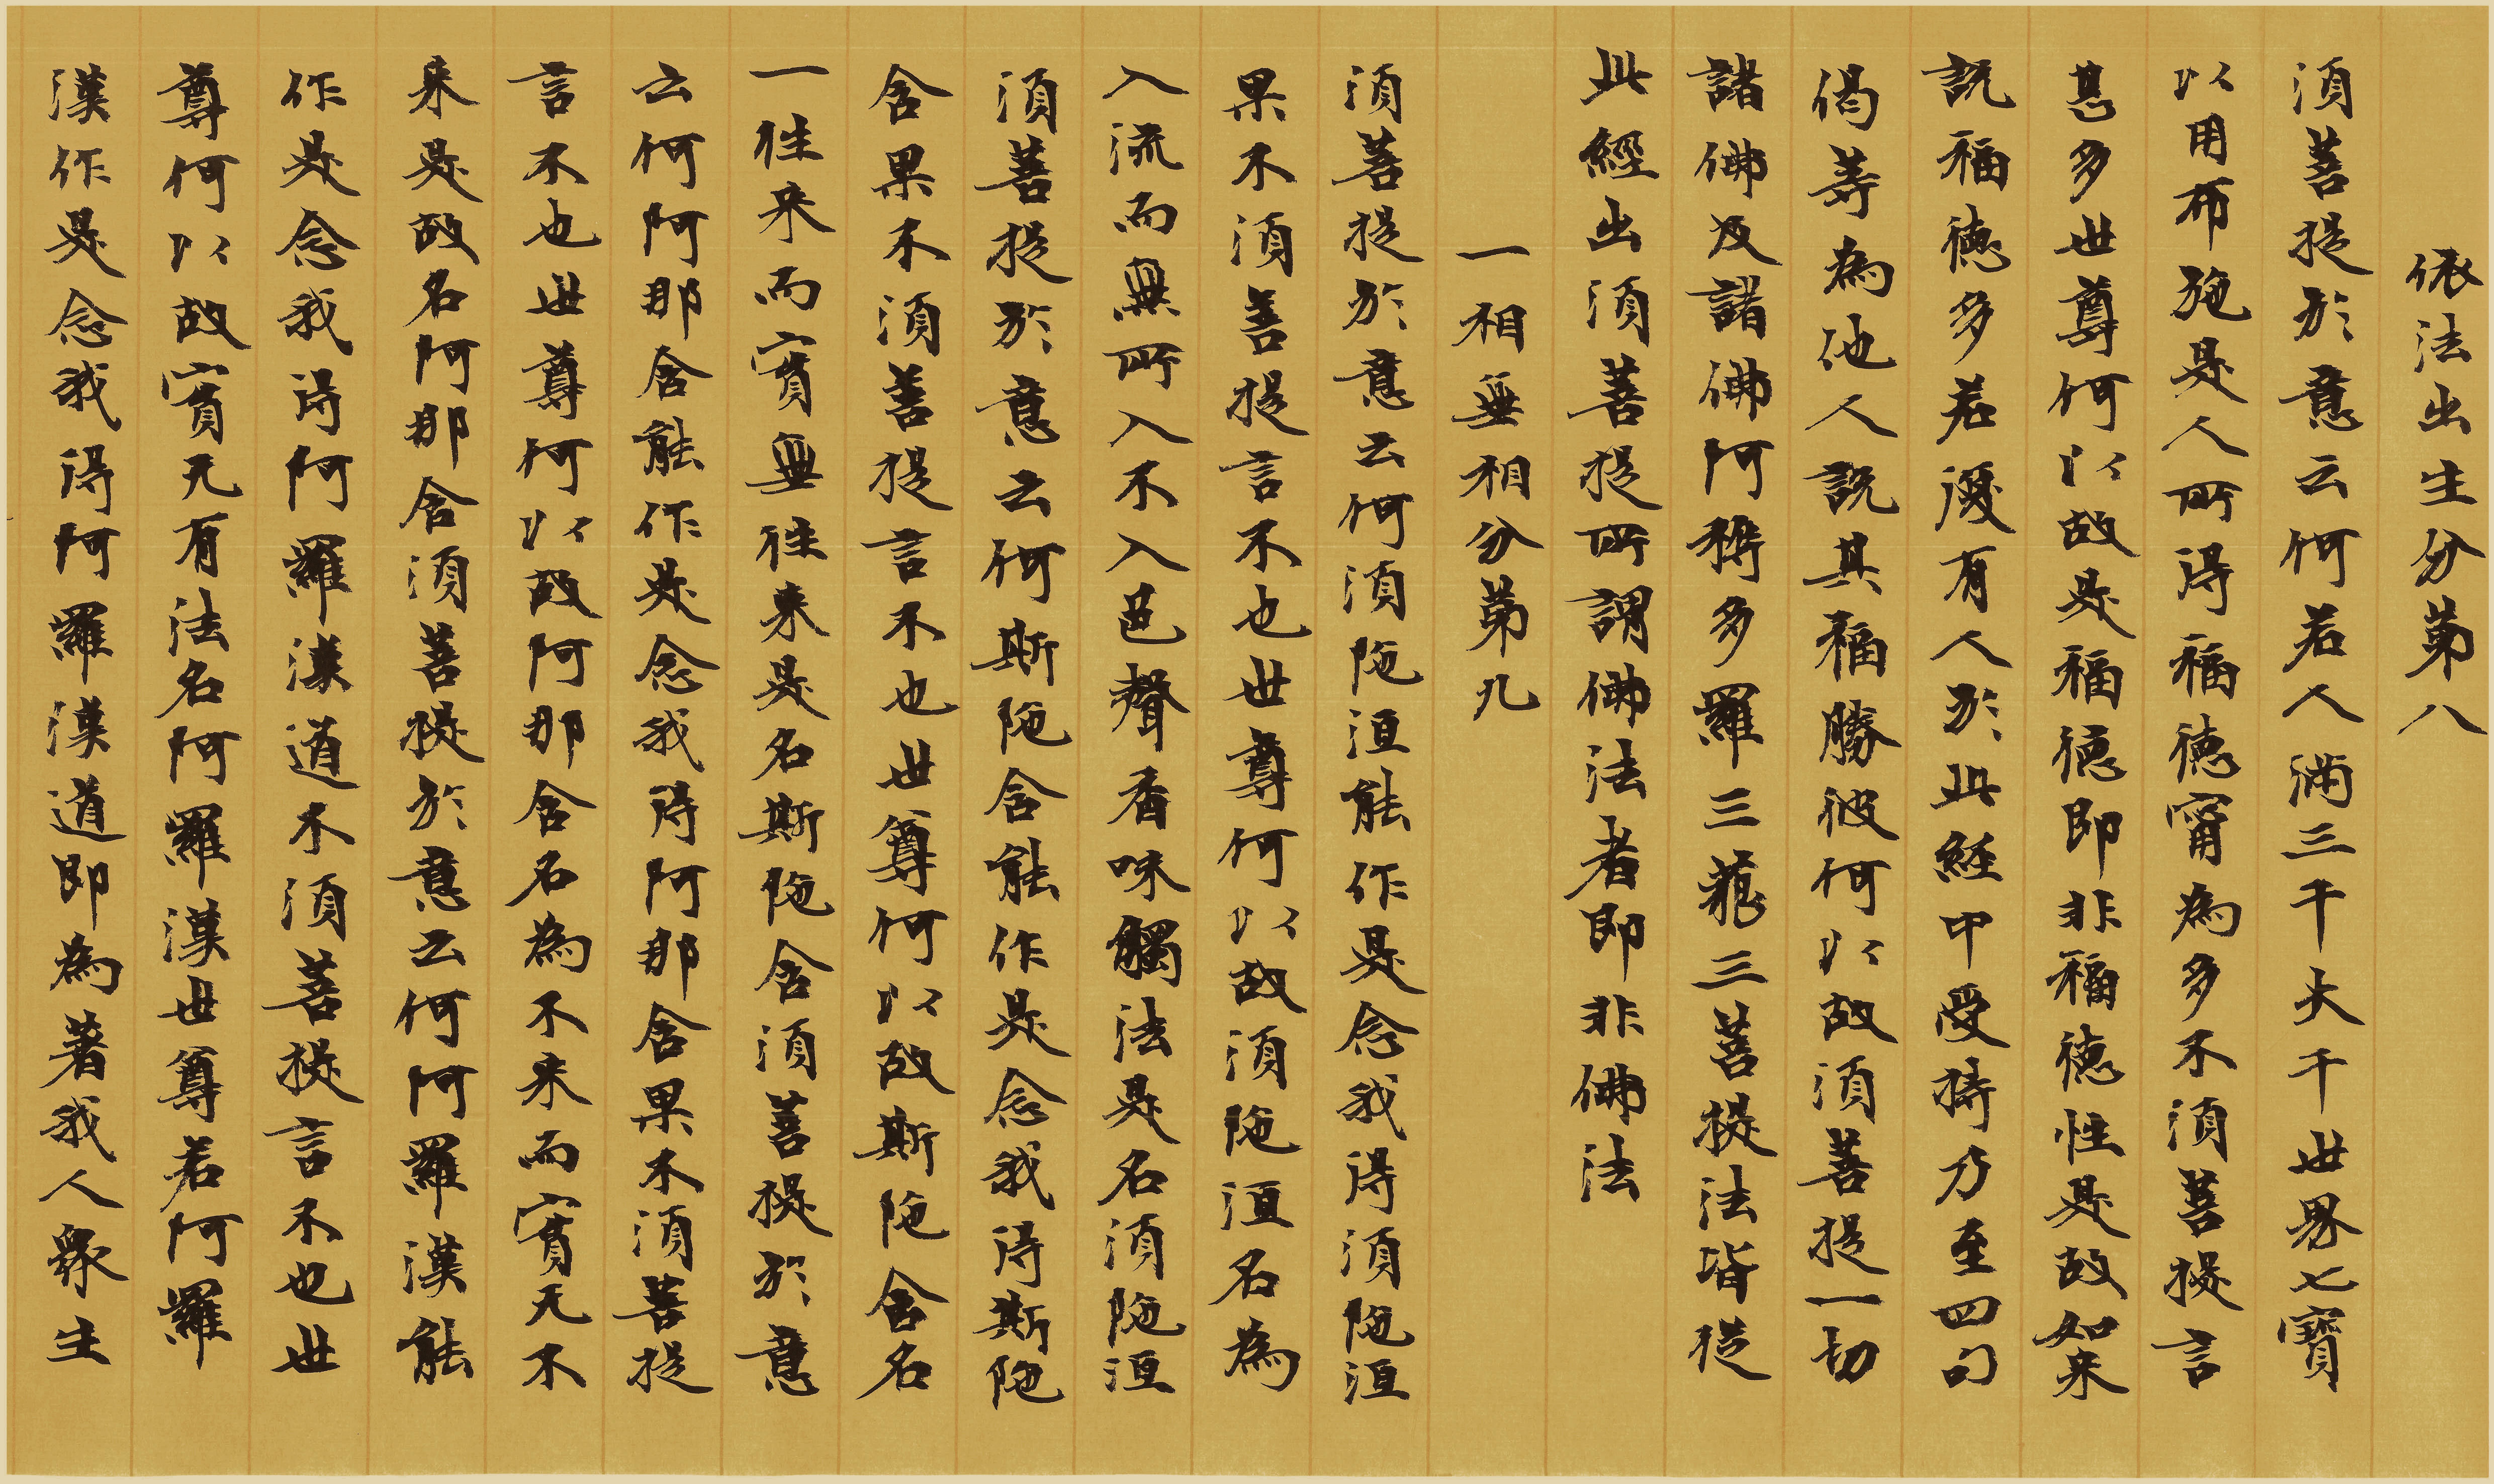 依法出生分第八
須菩提於意云何若人滿三千大千世界七寶
以用布施是人所得福德甯為多不須菩提言
甚多世尊何以故是福德即非福德性是故如来
説福德多若復有人於此経中受持乃至四句
偈等為他人説其福勝彼何以故須菩提一切
諸佛及諸佛阿耨多羅三藐三菩提法皆従
此經出須菩提所謂佛法者即非佛法
一相無相分第九
須菩提於意云何須陁洹能作是念我得須陁洹
果不須菩提言不也世尊何以故須陁洹名為
入流而無所入不入色聲香味觸法是名須陁洹
須菩提於意云何斯陁含能作是念我得斯陁
含果不須菩提言不也世尊何以故斯陁含名
一往来而實無往来是名斯陁含須菩提於意
云何阿那含能作是念我得阿那含果不須菩提
言不也世尊何以故阿那含名為不来而實无不
来是故名阿那含須菩提於意云何阿羅漢能
作是念我得阿羅漢道不須菩提言不也世
尊何以故實无有法名阿羅漢世尊若阿羅
漢作是念我得阿羅漢道即為著我人眾生